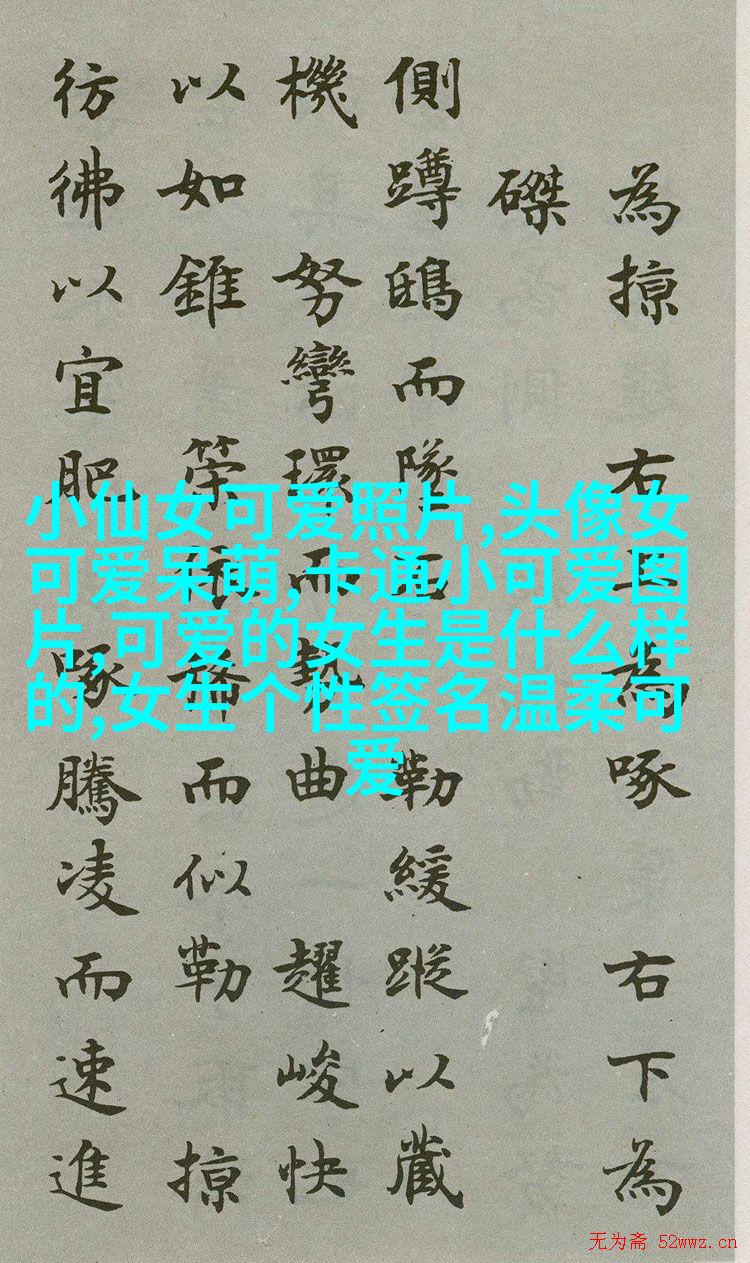 為掠 右上為啄 右下為
磔
側蹲鴟而墜石 勒緩蹤以藏
機 努彎環而勢曲 趯峻快
以如錐 策依稀而似勒 掠
彷彿以宜肥 啄騰凌而速進
小仙女可爱照片,头像女
可爱呆萌,卡通小可爱图
片,可爱的女生是什么样
的,女生个性签名温柔可
爱
无为斋 52wwz.cn